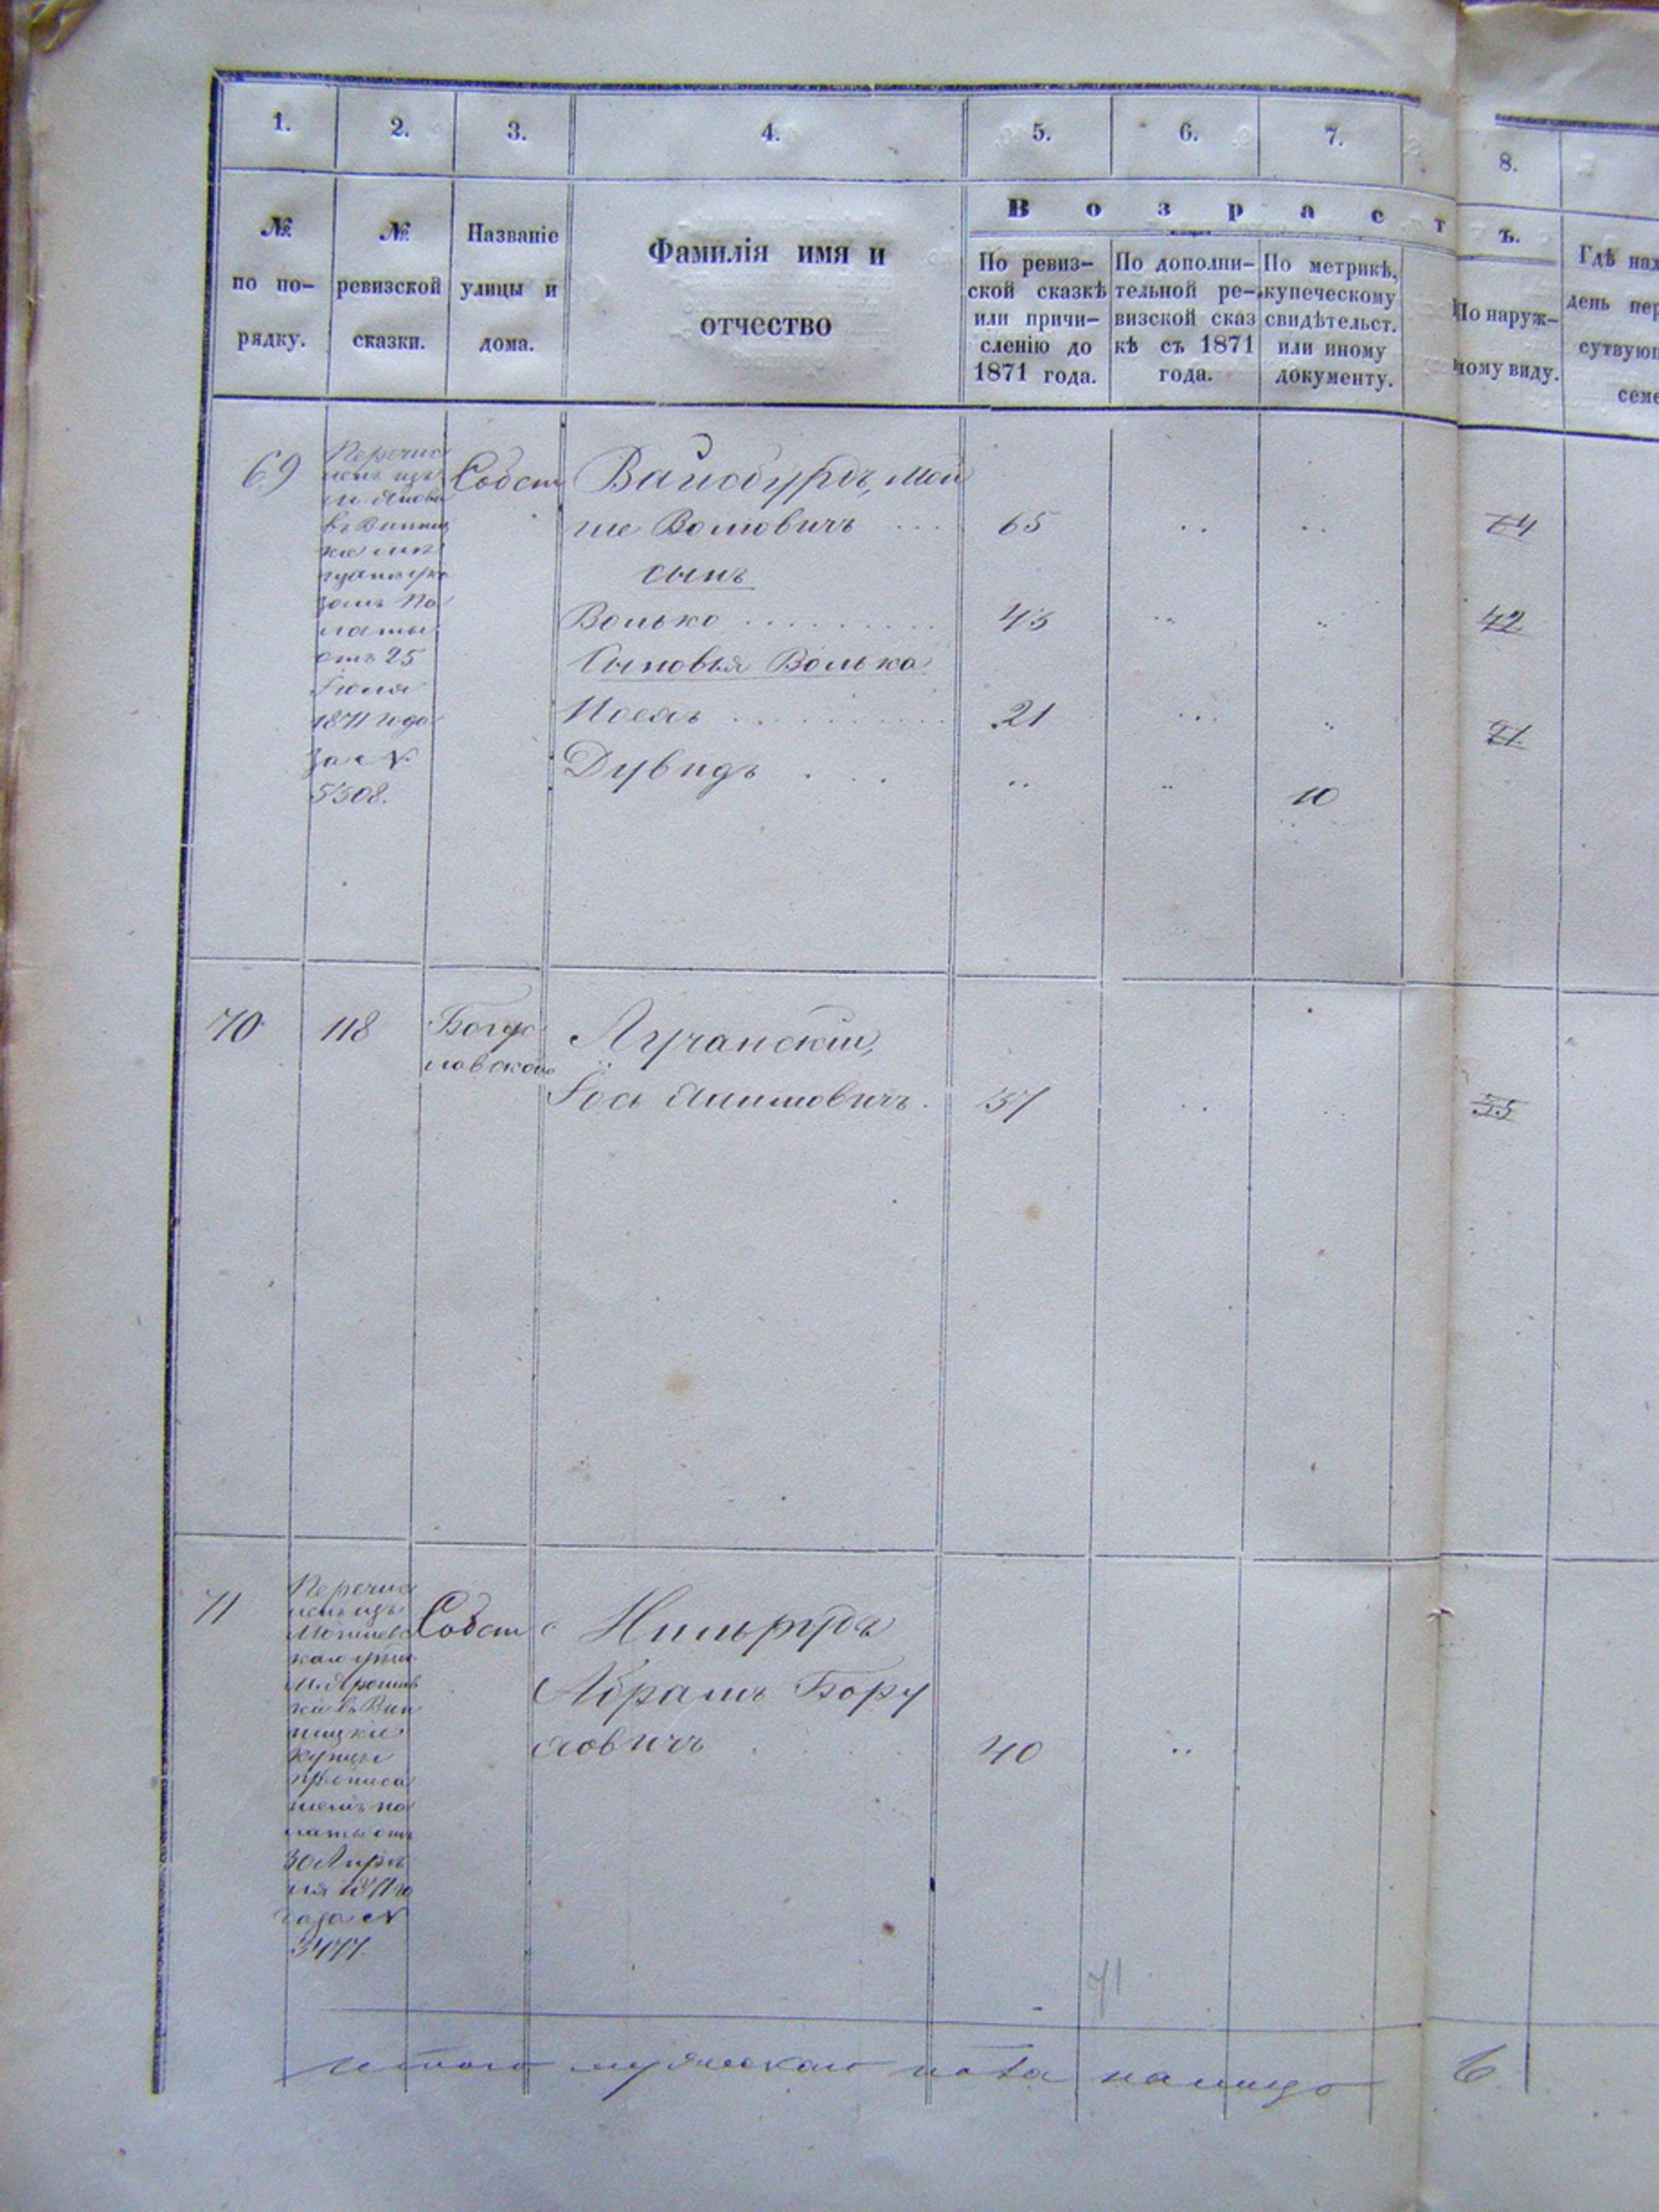 1. 2. 3. 4. 5. 6. 7. 8.
№ по по-рядку.
№ ревизской сказки.
Названіе улицы и дома.
Фамилія имя и отчество
В о з р а с т ъ.
По ревиз-
ской сказкѣ
или причи-
сленію до
1871 года.
По дополни-
тельной ре-
визской сказ
кѣ съ 1871
года.
По метрикѣ,
купеческому
свидѣтельст.
или иному
документу.
По наруж-
ному виду.
Гдѣ нах
день пер
сутвующ
семе
69
Перечис
ленъ изъ
м. Янова
въ Винниц
кіе мѣ
щане ука
зомъ Па
латы
отъ 25
Іюля
1871 года
за №
5508.
Собст
Вайсбурдъ, Мой
ше Волковичъ 65 64
сынъ
Волько 45 42
Сыновья Волька
Іосель 21 21
Дувидъ 10
70 118 Богус
лавскаго
Лучанскій,
Іось Аншіовичъ 57 55
71
Перечис
ленъ изъ
Собст
Абрамъ Бору
ховичъ 40
30 Апрѣ
ля 1871 го
да за №
3477.
71
Итого мужескаго пола налицо 6